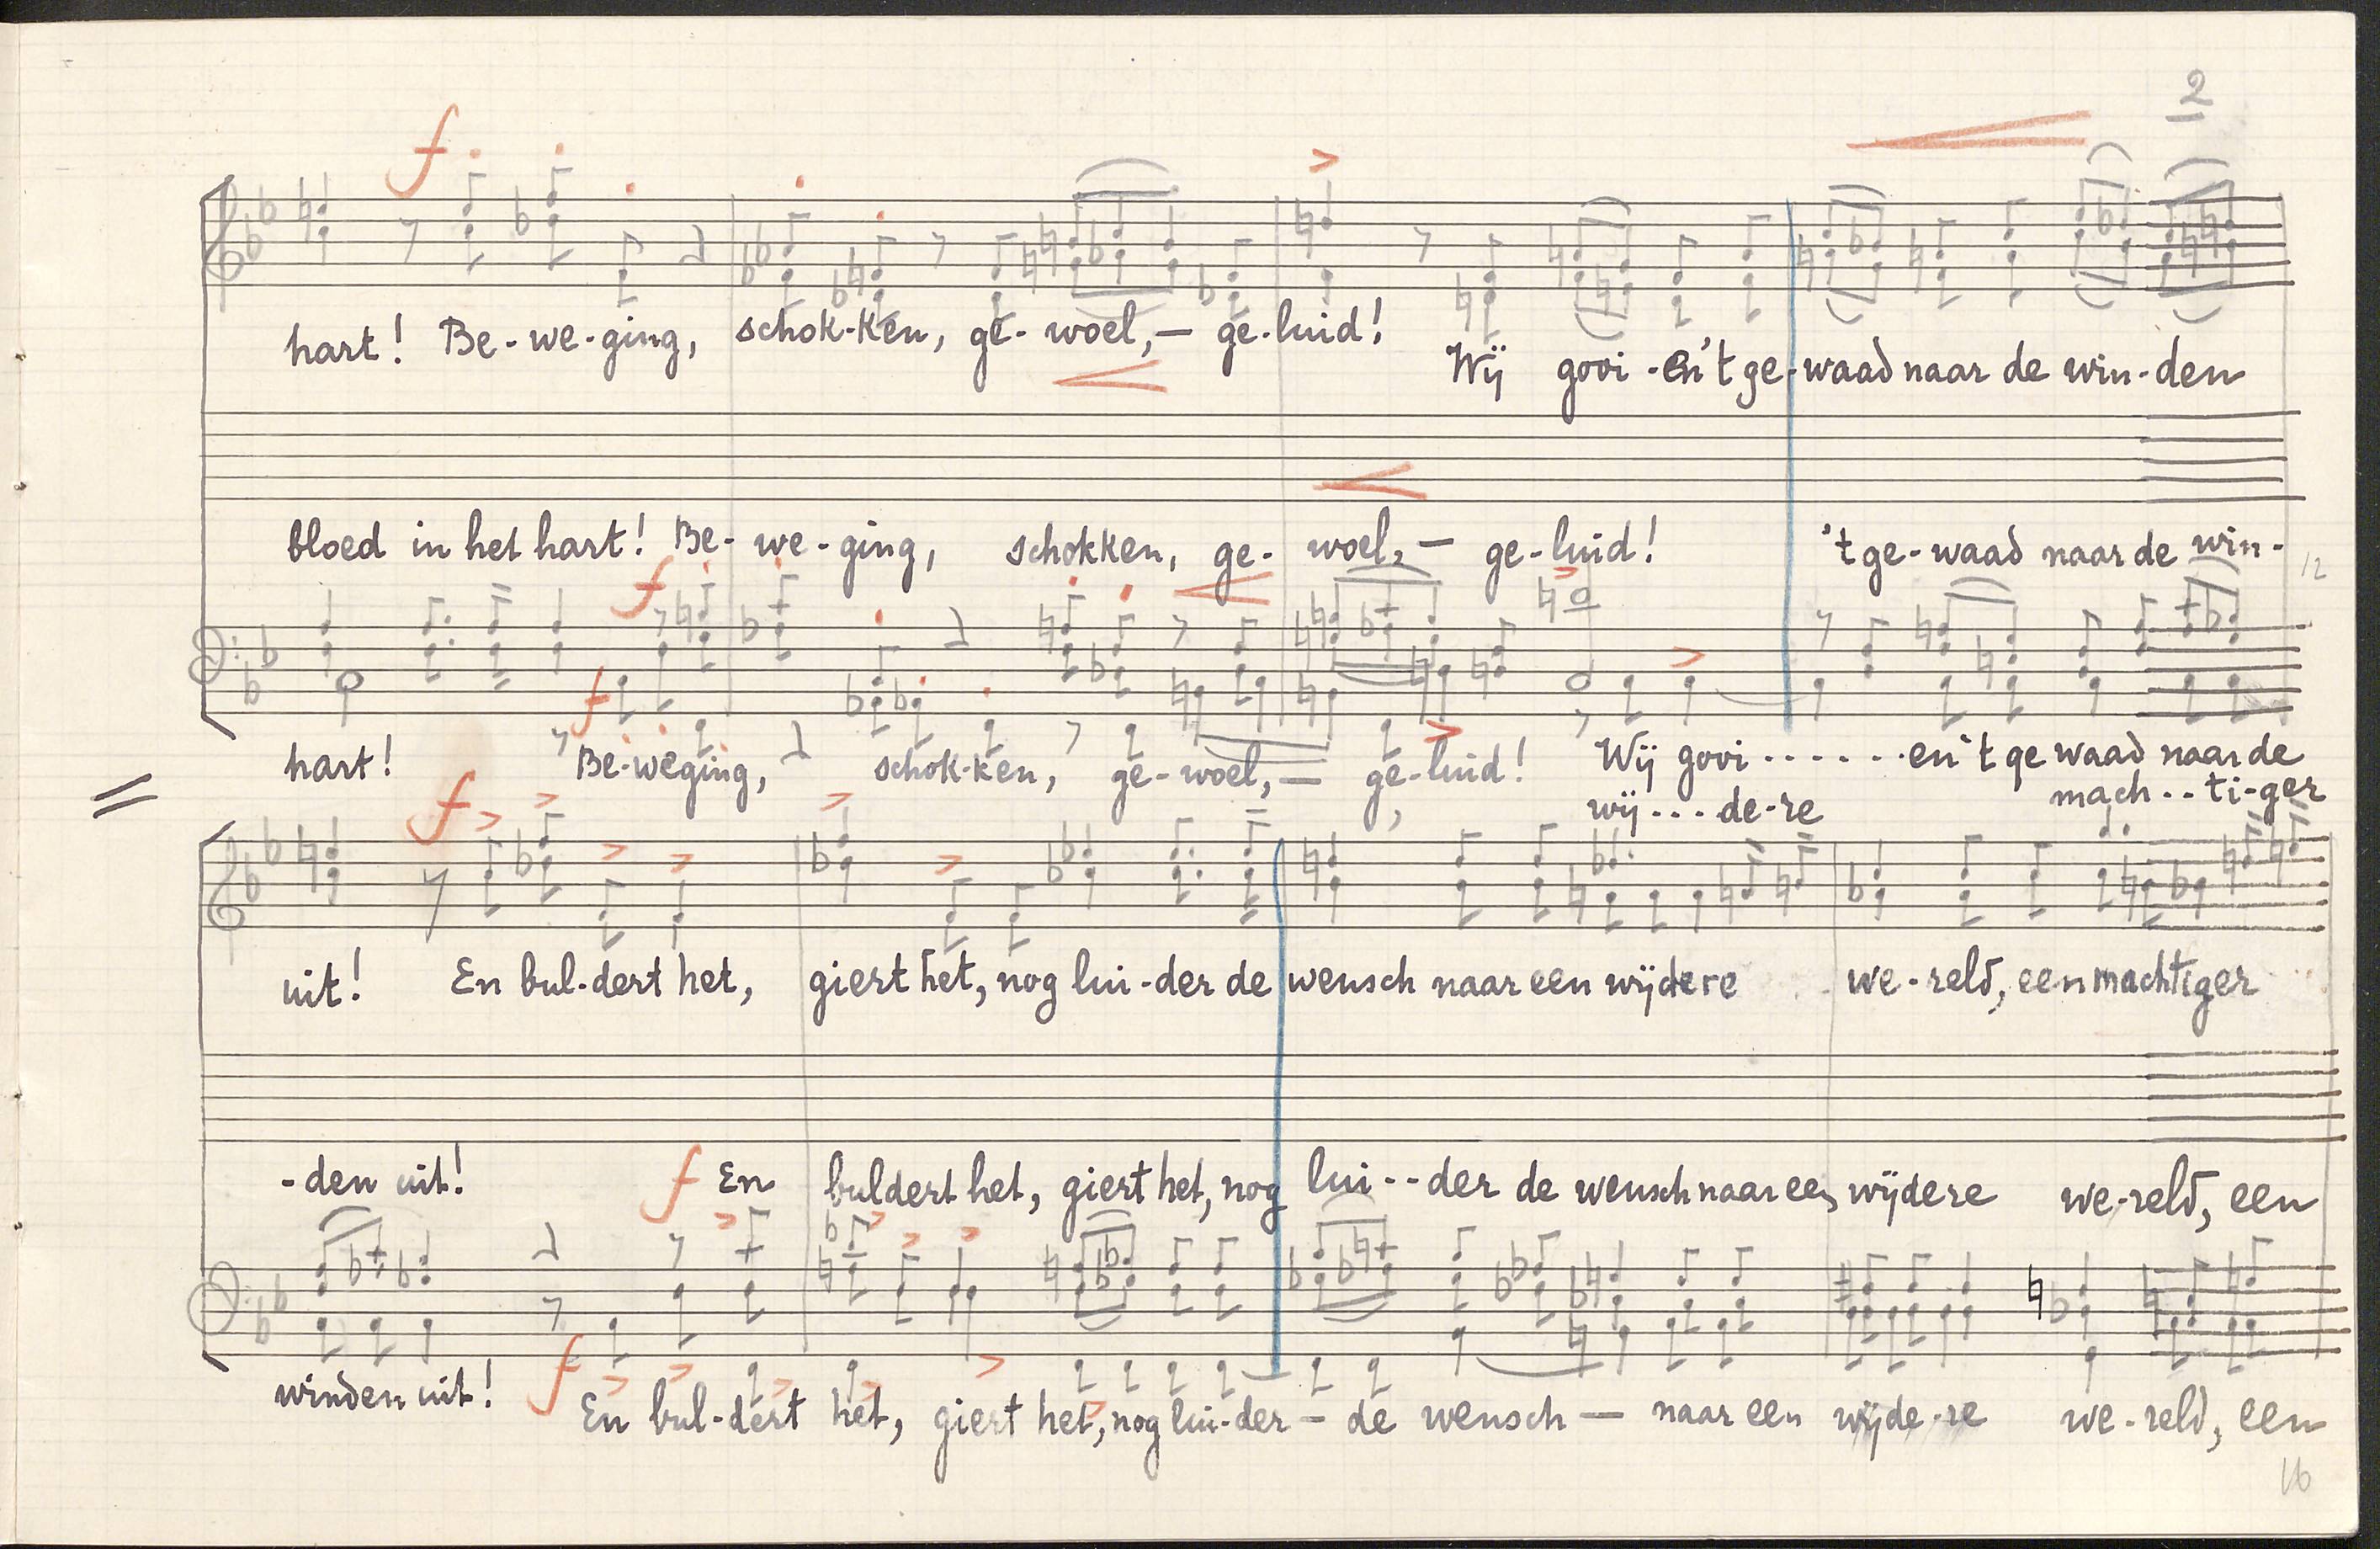 2
f
hart! Be-we-ging, schok-ken, ge-woel,— ge-luid! Wij gooi-en 't ge-waad naar de win-den
bloed in het hart! Be-we-ging, schokken, ge-woel,— ge-luid! 't ge-waad naar de win-
12
f
f
hart! Be-weging, schok-ken, ge-woel,— ge-luid! Wij gooi.......en 't ge waad naar de
wij...de-re mach..ti-ger
f
uit! En bul-dert het, giert het, nog lui-der de wensch naar een wijdere we-reld, een machtiger
-den uit! f En buldert het, giert het, nog lui--der de wensch naar een wijdere we-reld, een
winden uit! f En bul-dert het, giert het, nog lui-der – de wensch — naar een wijde-re we-reld, een
16